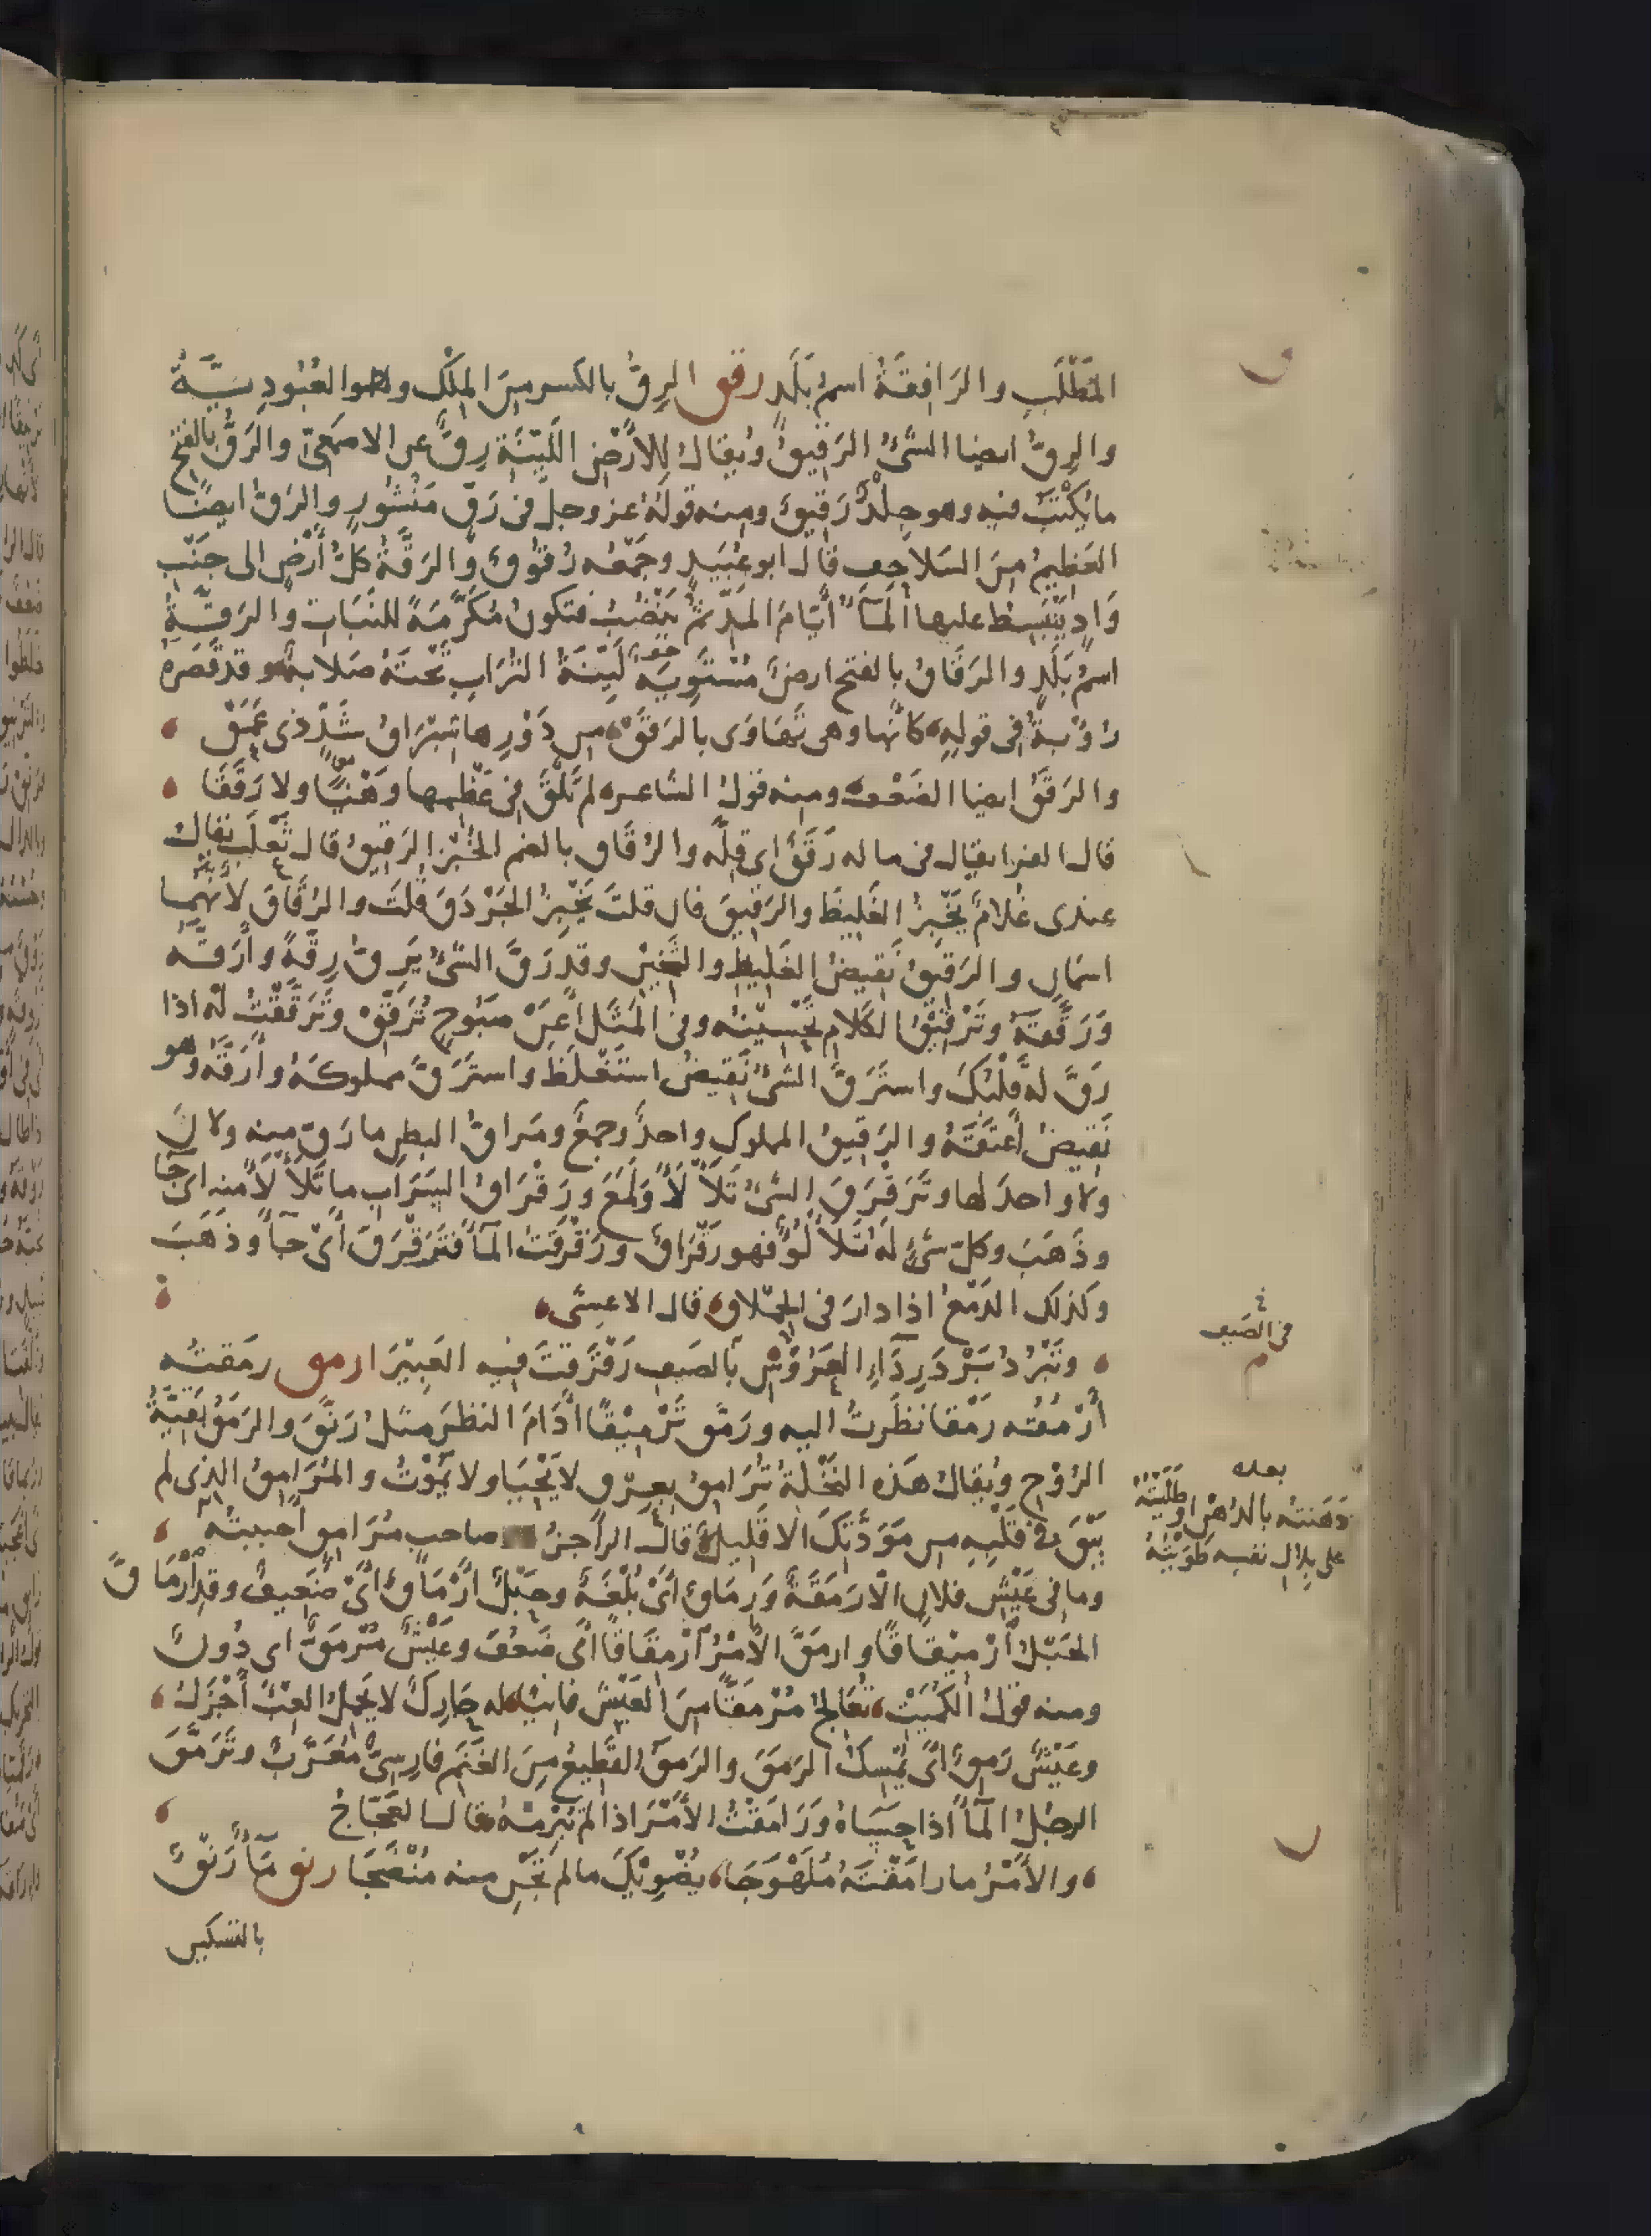 المَطْلَبِ والرَافِقَةُ اسمُ بَلَدٍ رقق الرِقُّ بالكسر مِنَ المِلْكِ وهو العُبُودِيَّةُ
والرِقُّ ايضا الشَّىْءُ الرَقِيقُ ويُقالُ لِلاَرْضِ اللَيِّنَةِ رِقٌّ عن الاصمَعِىّ والرَقُّ بالفتح
ما يُكْتَبُ فيه وهو جِلْدٌ رَقِيقٌ ومنه قولُهُ عز وجل فى رَقٍّ مَنْشُورٍ والرَقُّ ايضًا
العَظِيمُ مِنَ السَلاحِفِ قال ابو عُبَيدٍ وجَمْعُه رُقُوقٌ والرَقَّةُ كلُّ أَرْضٍ الى جَنْبِ
وَادٍ يَنْبَسِطُ عليها المَآءُ أَيَّامَ المَدِّ ثم يَنْضُبُ فتكونُ مُكَرَّمَةً للنَبَاتِ والرَقَّةُ
اسمُ بَلَدٍ والرَقَاقُ بالفتح ارضٌ مُسْتَوِيَةٌ لَيِّنَةُ التُرَابِ تَحْتَهُ صَلابةٌ وقد قَصَرَهُ
رُؤْبةُ فى قوله كانّها وهى تَهَاوَى بالرَقَقْ من ذَرْوِها شِبْرَاقُ شَدٍّ ذى عَمَقْ
والرَقَقُ ايضا الضَعْف ومنه قولُ الشاعر لم تَلْقَ فى عَظْمِها وَهْنًا ولا رَقَقَا
قال الفرا يقال فى ماله رَقَقٌ اى قِلّه والرُقَاق بالضم الخُبْزُ الرَقِيقُ قال ثَعْلَبٌ يقالُ
عندى غُلامٌ يَخْبِزُ الغَلِيظَ والرَقِيقَ فان قلتَ يَخْبِزُ الجَرْدَقَ قُلتَ والرُقَاقَ لأنّهما
اسمان والرَقيقُ نَقِيضُ الغَلِيظِ والثَخِيْنِ وقد رَقَّ الشَىْءُ يَرِقُّ رِقَّةً وأَرَقَّهُ
وَرَقَّقَهُ وتَرْقِيْقُ الكَلامِ تَحْسِيْنُه وفى المَثَلِ أَعَنْ صَبُوحٍ تُرَقِّقْ وتَرَقَّقْتُ لَهُ اذا
رَقَّ لهُ قَلْبُكَ واستَرَقَّ الشىْءُ نَقِيضُ استَغْلَظَ واستَرَقَّ مملوكَهُ وأَرَقَّهُ وهو
نَقِيضُ أَعتَقَهُ والرَقِيقُ المملوك واحدٌ وجمعٌ ومَراقُّ البطن ما رَقَّ منه ولانَ
ولا واحدَ لها وتَرَقْرَقَ الشىْءُ تَلَأْلَأَ ولَمَعَ ورَقْرَاقُ السَرَابِ ما تَلَأْلَأَ منه اى جَا
وذَهَبَ وكلّ شىْءٍ لَهُ تَلَأْلُؤٌ فهو رَقْرَاقٌ ورَقْرَقْتُ المآءَ فَتَرَقْرَقَ أىْ جآءَ وذَهَبَ
وكذلك الدَمْعُ اذا دارَ فى الحِمْلاقِ قال الاعشى
وتَبْرُدُ بَرْدَ رِدَآءِ العَرُوْسِ بالصَيفِ رَقْرَقْتَ فيه العَبِيْرَا رمق رمَقتُه
أَرْمُقُه رَمْقا نظَرتُ اليه ورَمَّق تَرْمِيْقًا أدَامَ النظرَ مثلُ رَنَّقَ والرَمَقُ بَقِيَّةُ
الرُوْحِ ويُقالُ هذه النَخْلَةُ تُرَامِقُ بعِرْقٍ لا يَحْيَا ولا يَمُوْتُ والمُرَامِقُ الذى لم
يَبْقَ فى قَلْبِهِ من مَوَدَّتِكَ الا قَلِيلٌ قال الراجزُ وصاحبٍ مُرَامِقٍ داجَيتُه
وما فى عَيْشِ فلانٍ الّا رَمَقَةٌ وَرِمَاقٌ أىْ بُلْغَةٌ وحَبْلٌ أَرْمَاقٌ أَىْ ضَعِيفٌ وقد ارْمَاقَّ
الحَبْلُ ارْمِيْقَاقًا وارمَقَّ الأَمْرُ ارْمِقَاقًا اى ضَعُفَ وعَيْشٌ مُرْمَقٌّ اى دُونٌ
ومنه قولُ الكُمَيْتِ نُعَالِجُ مُرْمَقًّا مِنَ العَيْشِ فانيًا له حارِكٌ لا يَحْمِلُ العِبْءَ أَجْزَلُ
وعَيْشٌ رَمِقٌ أىْ يُمْسِكُ الرَمَقَ والرَمَقُ القَطِيعُ مِنَ الغَنَمِ فارِسىٌّ مُعَرَّبٌ وتَرَمَّقَ
الرجُلُ المآءَ اذا حَسَاهُ ورَامَقْتُ الأَمْرَ اذا لم تُبْرِمْهُ قال العَجّاجُ
والأمْرُ ما رامَقْتَهُ مُلَهْوَجَا يُضْوِيْكَ ما لم تَجْنِ منه مُنْضَجَا رنق مَآءٌ رَنْقٌ
بالتسكين
فى الصَيف
بعده
دَهَنتُه بالدُهن او طَلَيْتُهُ
على بِلالِ نفسِه طَوَيْتُهُ